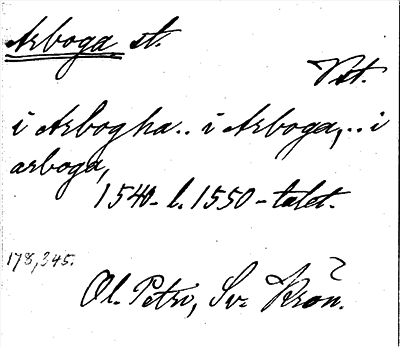 Arboga st.
Vst.
i Arbogha.. i Arboga,.. i
arboga,
1540- l. 1550-talet.
178,345.
Ol. Petri, Sv. Krön.